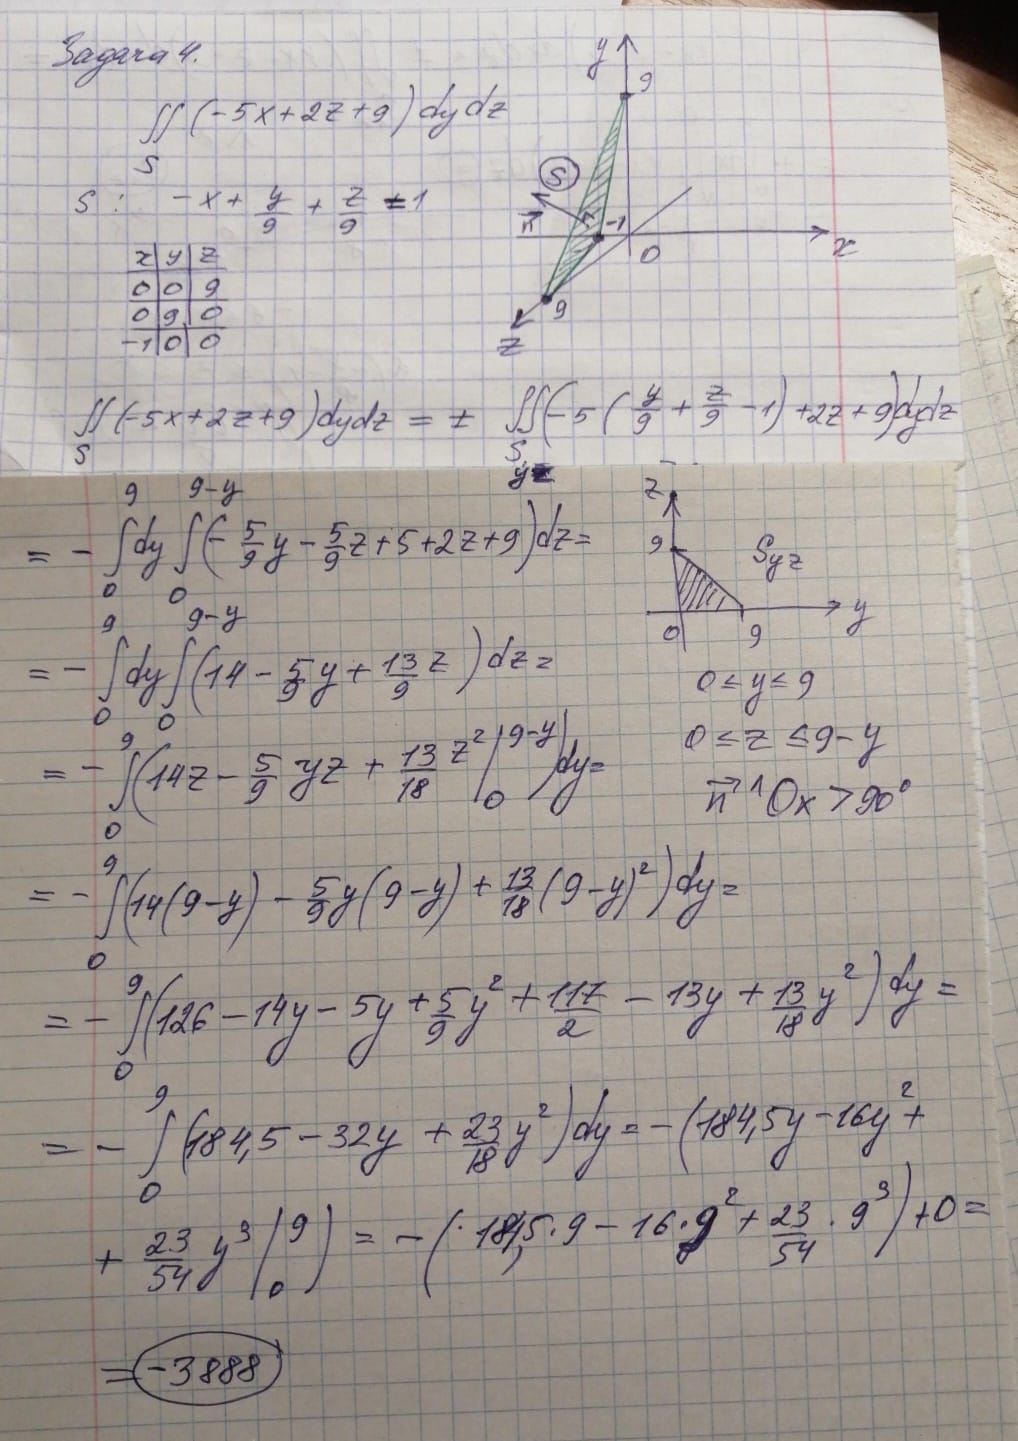 Задача 4.
∬ (-5x+2z+9) dydz
S
S: -x + y/9 + z/9 = 1
x | y | z
0 | 0 | 9
0 | 9 | 0
-1 | 0 | 0
y
9
S
n⃗
-1
0
x
9
z
∬ (-5x+2z+9) dydz = ± ∬ (-5 (y/9 + z/9 - 1) + 2z + 9) dydz
S
S
= - ∫₀⁹ dy ∫₀^(9-y) (-5/9 y - 5/9 z + 5 + 2z + 9) dz =
z
9
Syz
0
9
y
= - ∫₀⁹ dy ∫₀^(9-y) (14 - 5/9 y + 13/9 z) dz =
0 ≤ y ≤ 9
0 ≤ z ≤ 9-y
n⃗ ^ Ox > 90°
= - ∫₀⁹ (14z - 5/9 yz + 13/18 z² |₀^(9-y)) dy =
= - ∫₀⁹ (14(9-y) - 5/9 y(9-y) + 13/18 (9-y)²) dy =
= - ∫₀⁹ (126 - 14y - 5y + 5/9 y² + 117/2 - 13y + 13/18 y²) dy =
= - ∫₀⁹ (184,5 - 32y + 23/18 y²) dy = - (184,5y - 16y² +
+ 23/54 y³ |₀⁹) = - (184,5 · 9 - 16 · 9² + 23/54 · 9³) + 0 =
= -3888